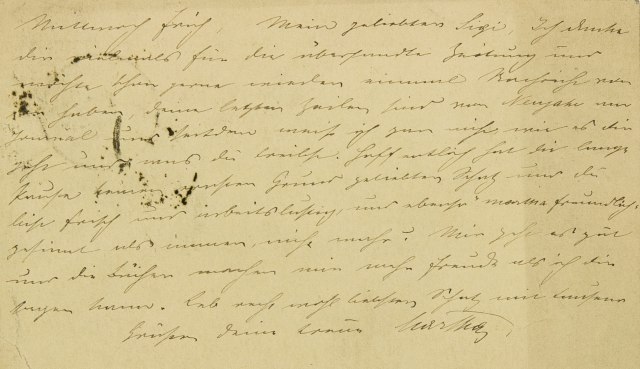 Mittwoch früh Mein geliebter Sigi, Ich danke
dir vielmals für die übersandte Zeitung und
möchte schon gerne wieder einmal Nachricht von
dir haben, deine letzten Zeilen sind von Neujahr
und seitdem weiß ich gar nicht wie es dir
geht und was du treibst. Hoffentlich hat die lange
Pause keinen Grund geliebter Schatz und du
bist frisch und arbeitslustig, und ebenso "martha freundlich"
gesinnt als immer, nicht wahr? Mir geht es gut
und die Bücher machen mir mehr Freude als ich dir
sagen kann. Leb recht wohl liebster Schatz mit tausend
Grüßen deine treue Martha.